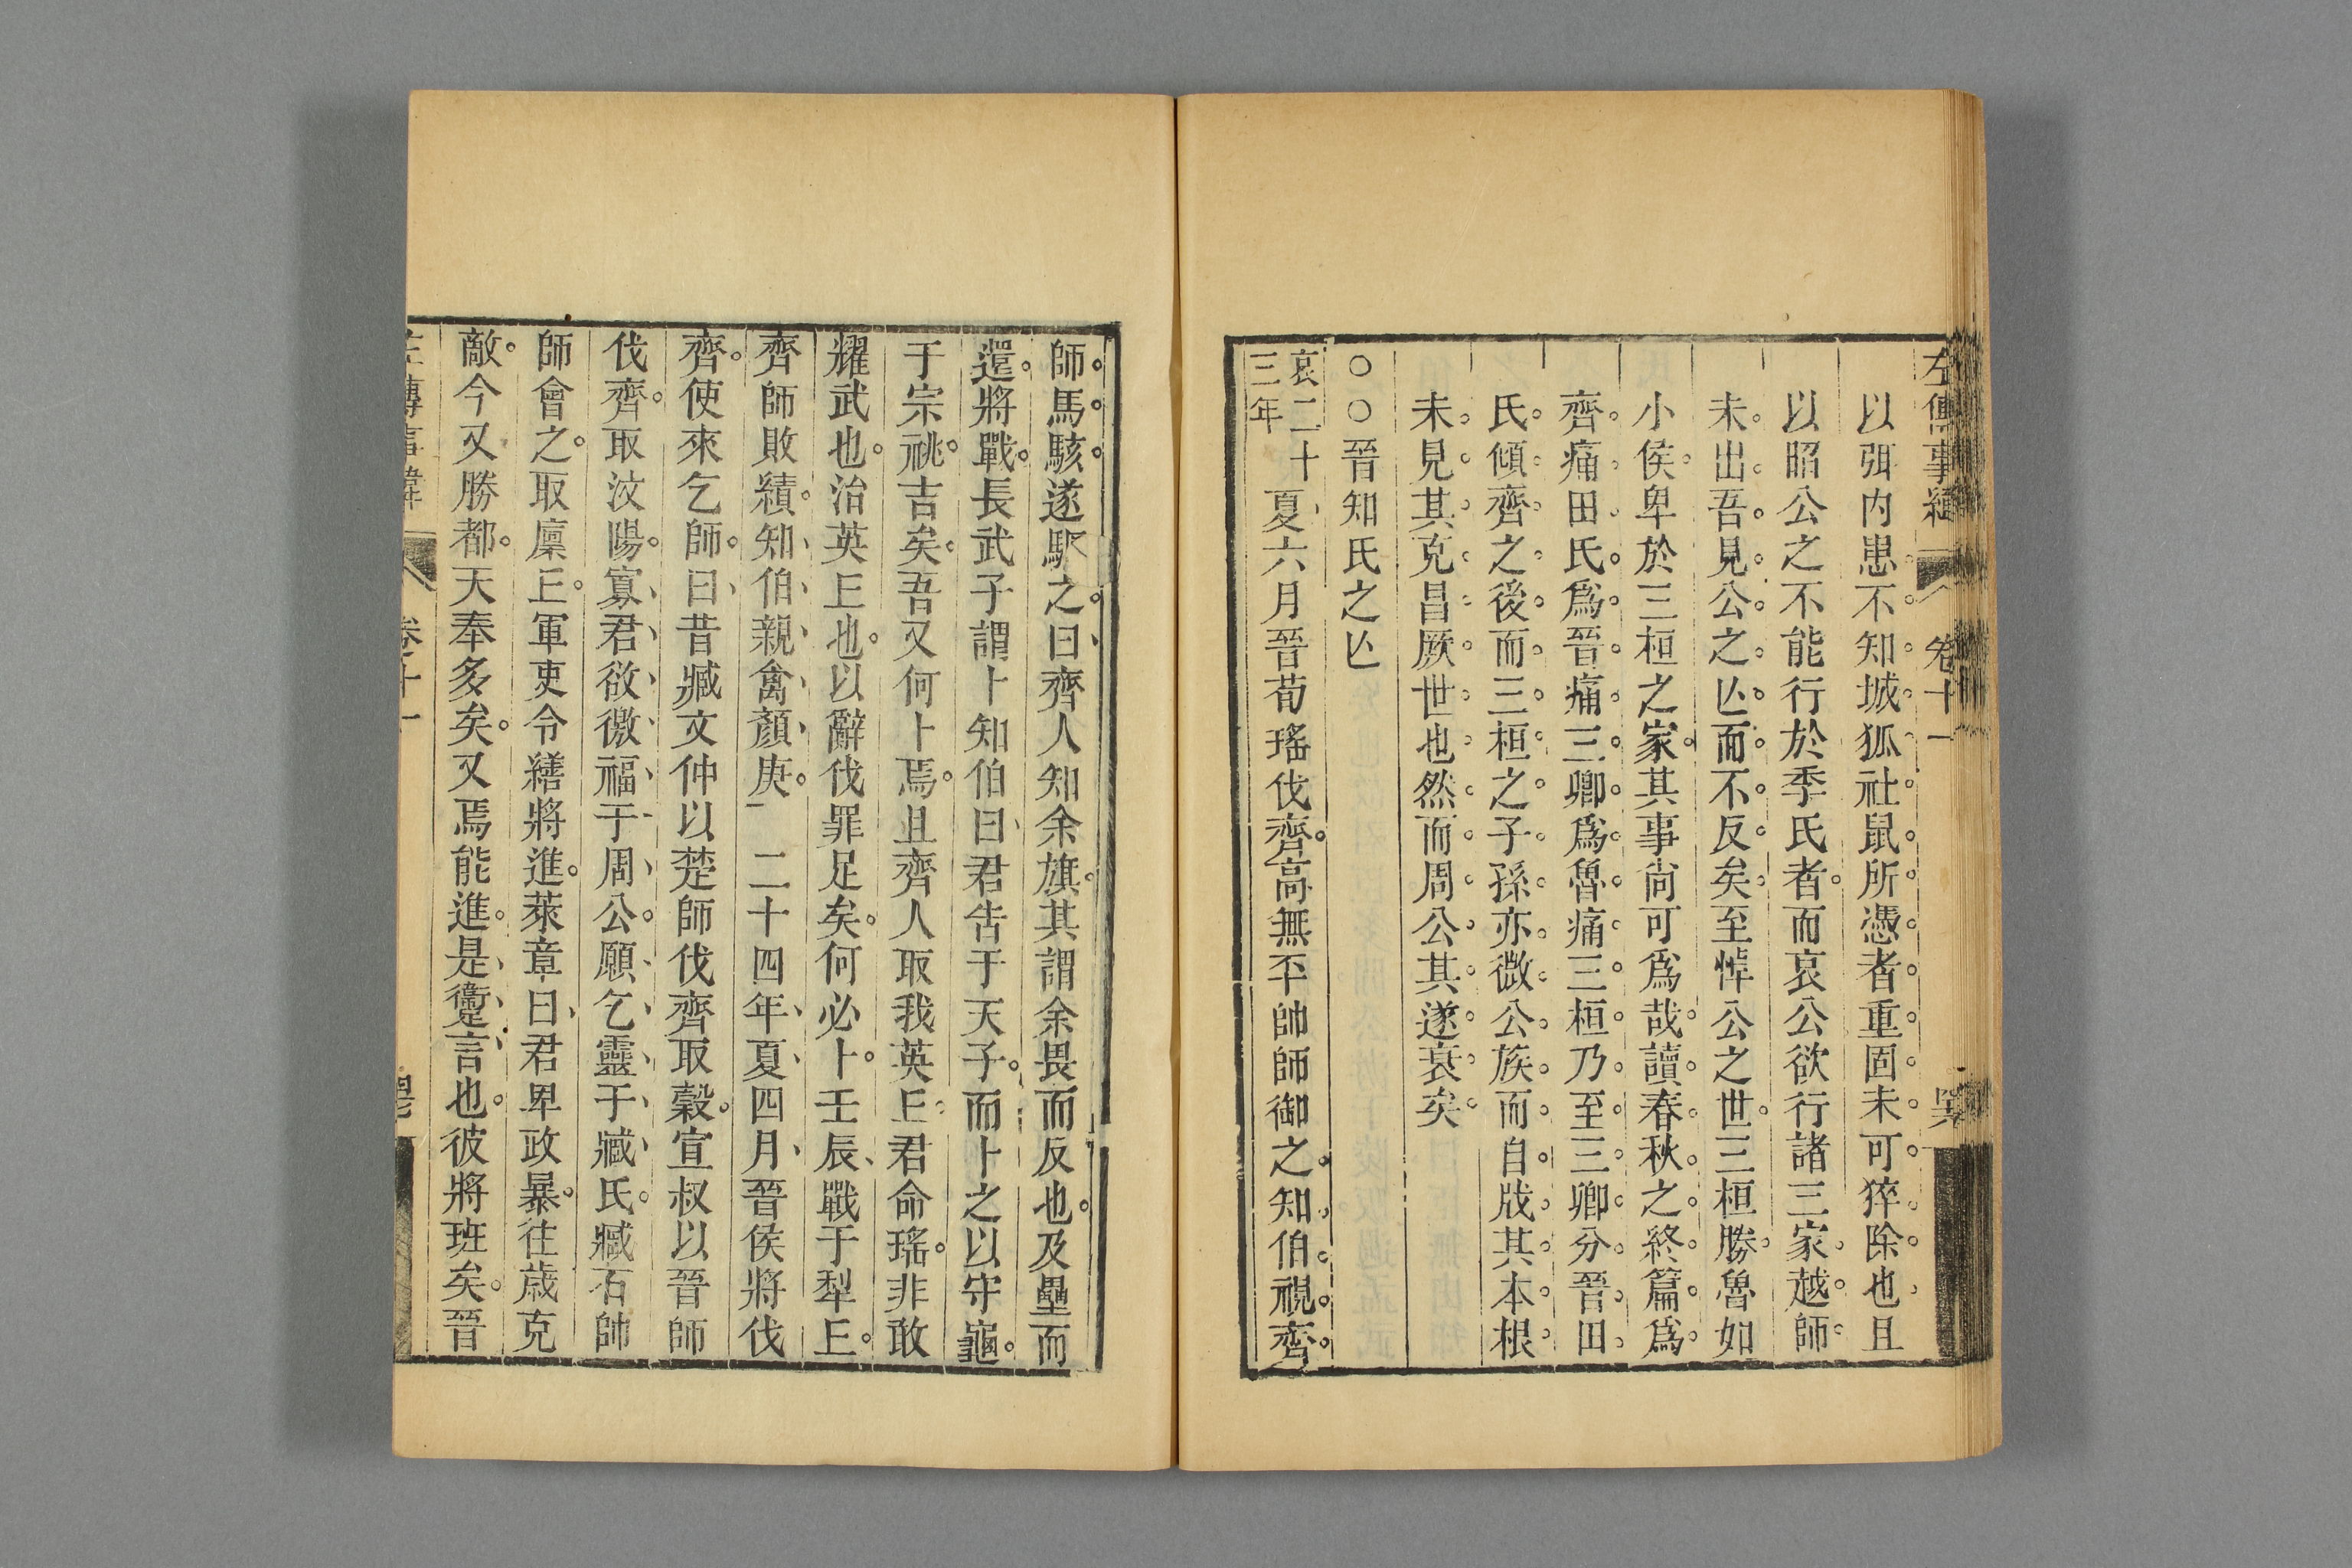 左傳事緯 卷十一
以弭内患不知城狐社鼠所憑者重固未可猝除也且
以昭公之不能行於季氏者而哀公欲行諸三家越師
未出吾見公之亾而不反矣至悼公之世三桓勝魯如
小侯卑於三桓之家其事尚可爲哉讀春秋之終篇爲
齊痛田氏爲晉痛三卿爲魯痛三桓乃至三卿分晉田
氏傾齊之後而三桓之子孫亦微公族而自戕其本根
未見其克昌厥世也然而周公其遂衰矣
○○晉知氏之亾
哀二十三年夏六月晉荀瑤伐齊高無㔻帥師御之知伯視齊
師馬駭遂駈之曰齊人知余旗其謂余畏而反也及壘而
還將戰長武子謂卜知伯曰君告于天子而卜之以守龜
于宗祧吉矣吾又何卜焉且齊人取我英丘君命瑤非敢
耀武也治英丘也以辭伐罪足矣何必卜壬辰戰于犁丘
齊師敗績知伯親禽顏庚 二十四年夏四月晉侯將伐
齊使來乞師曰昔臧文仲以楚師伐齊取穀宣叔以晉師
伐齊取汶陽寡君欲徼福于周公願乞靈于臧氏臧石帥
師會之取廩丘軍吏令繕將進萊章曰君卑政暴往歲克
敵今又勝都天奉多矣又焉能進是躗言也彼將班矣晉
左傳事緯 卷十一